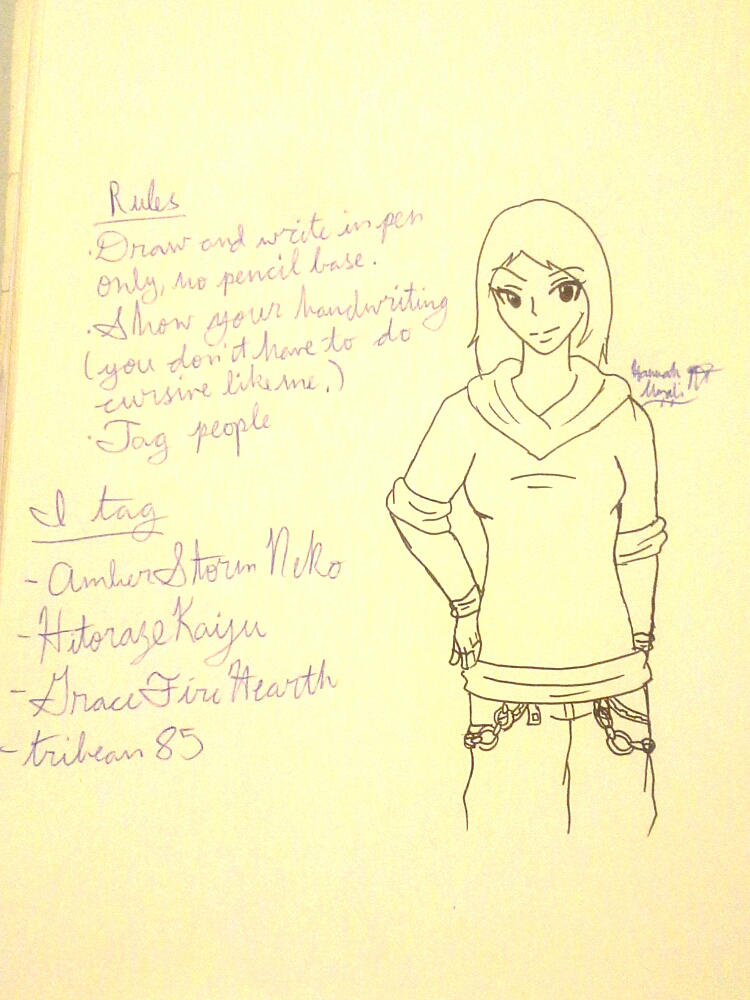 Rules
· Draw and write in pen
only, no pencil base.
· Show your handwriting
(you don't have to do
cursive like me.)
· Tag people
I tag
- AmberStormNeko
- HitorazeKaiju
- GraceFireHearth
- tribean85
Hannah